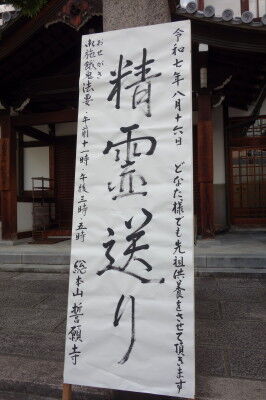 令和七年八月十六日　どなた様でも先祖供養をさせて頂きます
精霊送り
おせがき
御施餓鬼法要　午前十一時・午後三時・五時
総本山　誓願寺